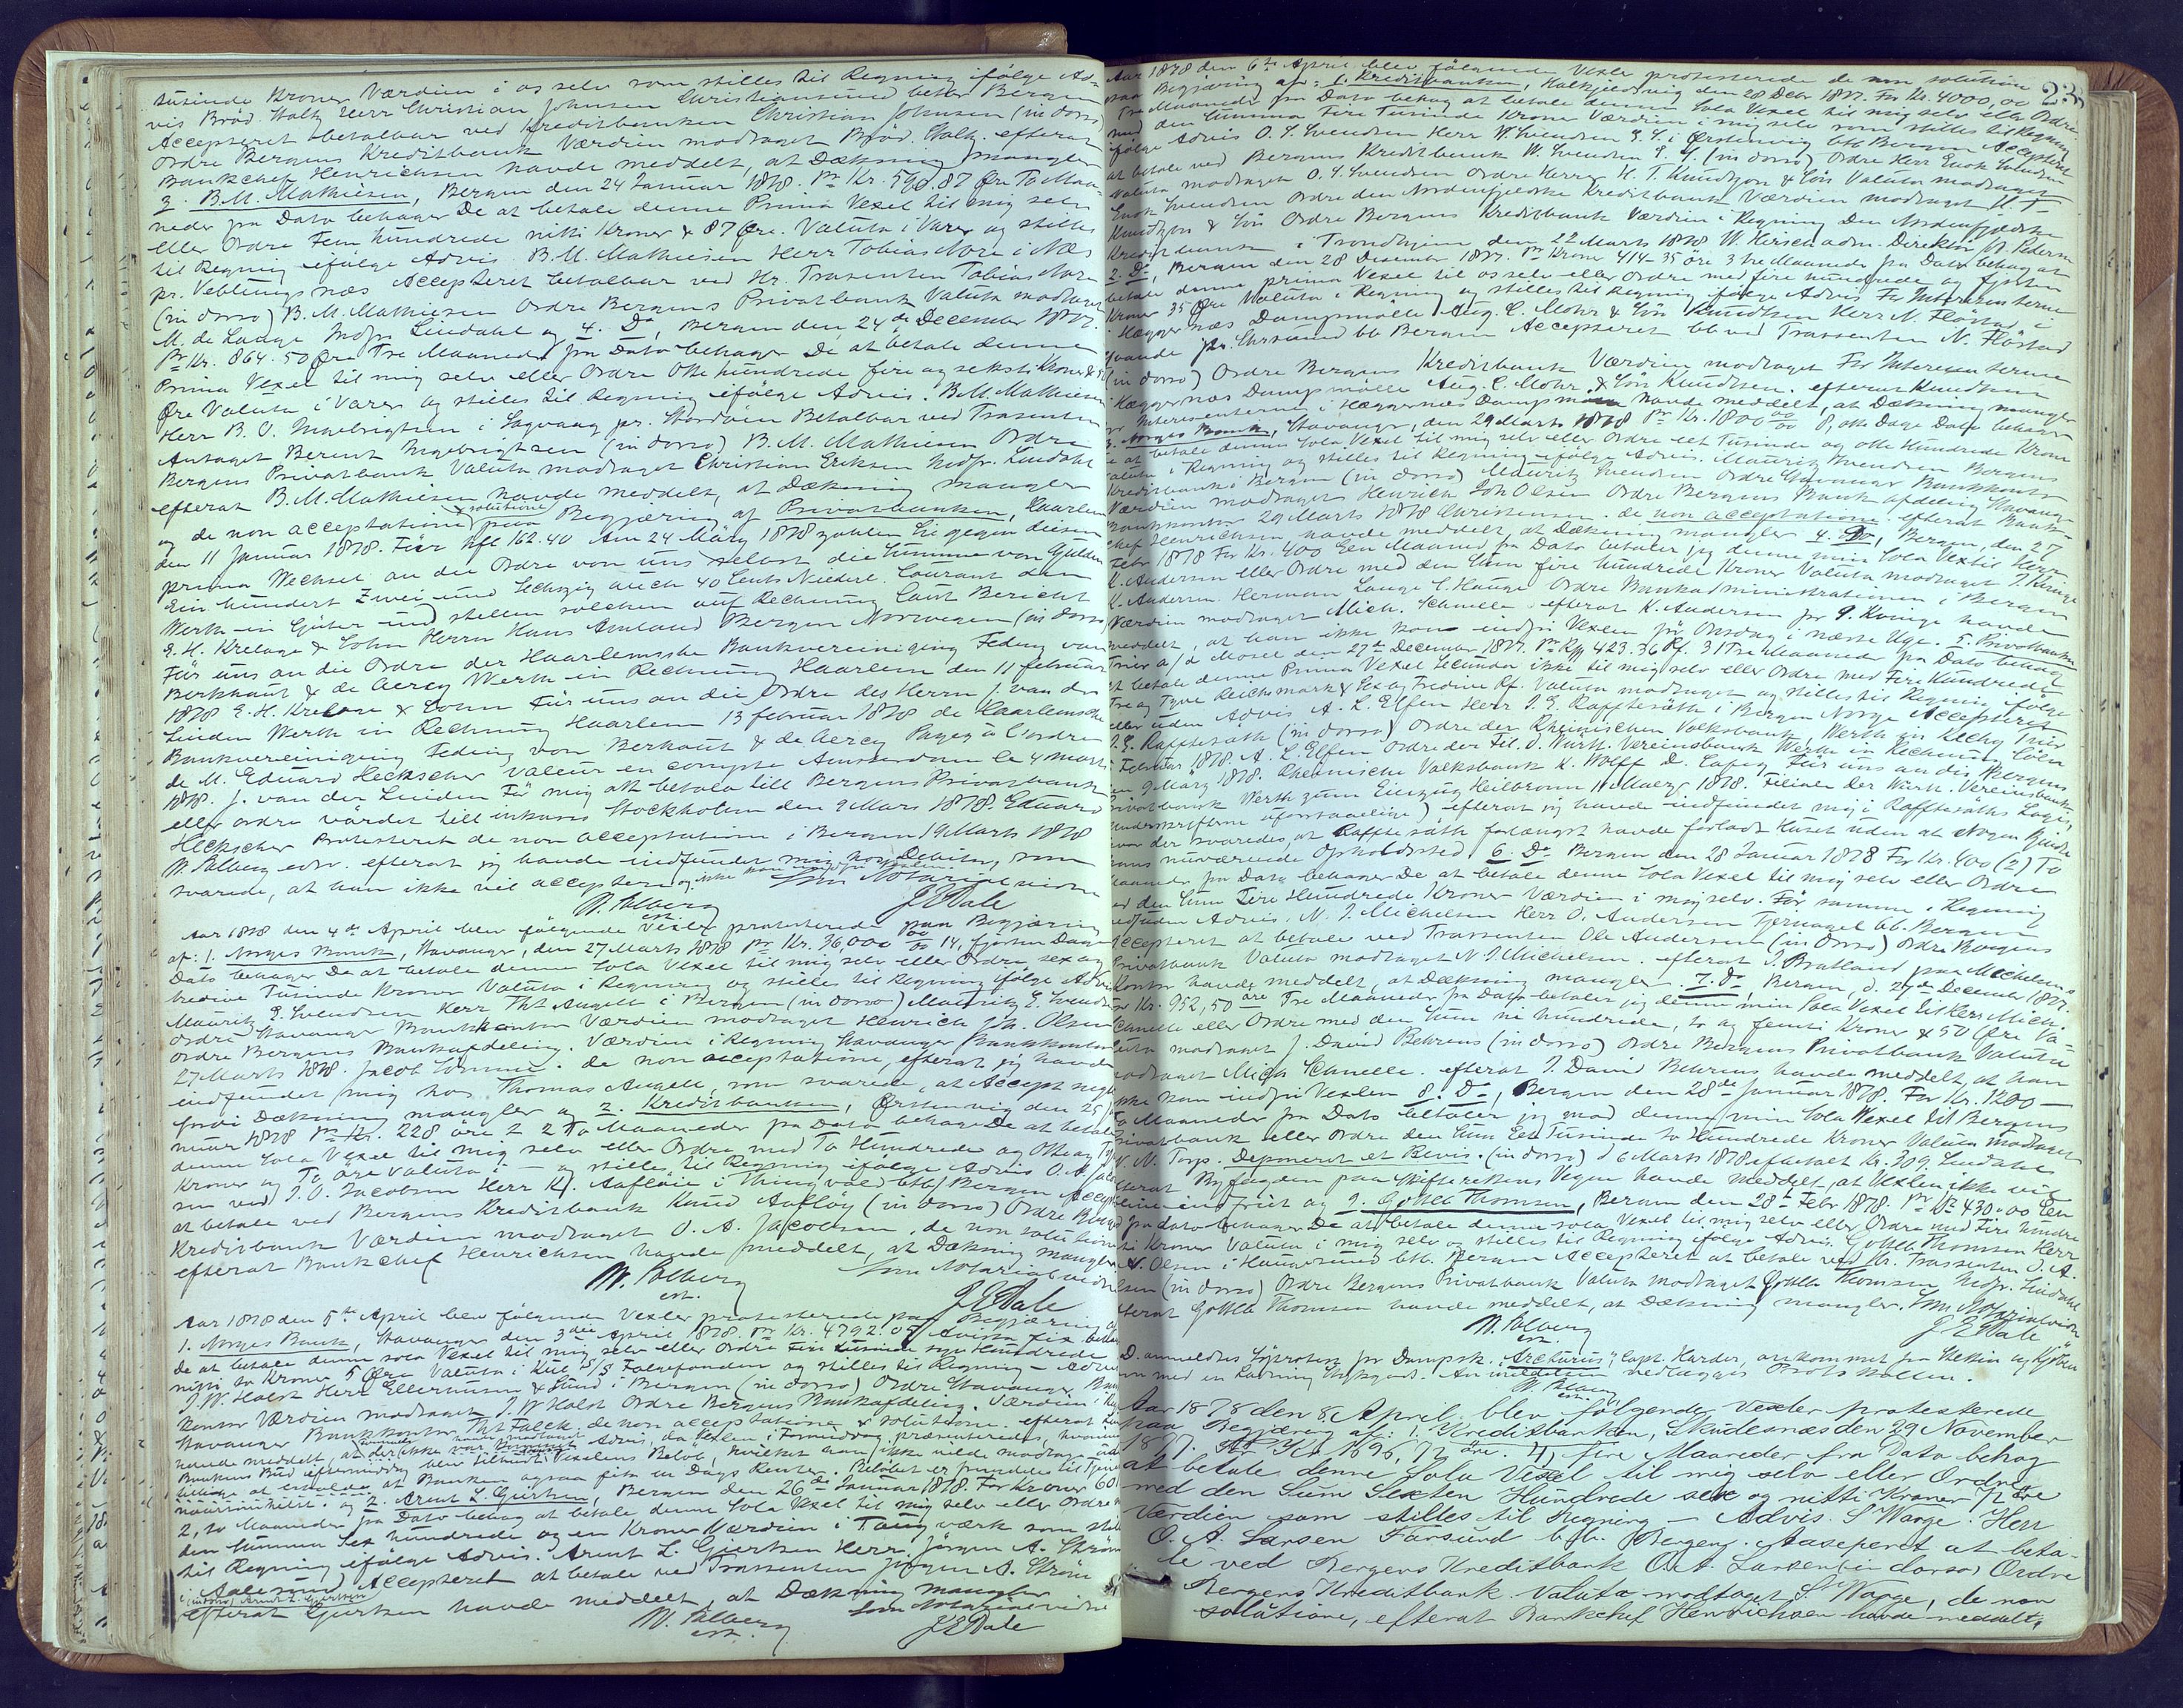 tusinde Kroner Værdien i os selv som stilles til Regning ifølge Ad-
vis Brød. Volkz Herr Christian Johnsen Christianssund betbr Bergen
Accepteret at betalbar ved Kreditbanken Christian Johnsen (in dorso)
Ordre Bergens Kreditbank Værdien modtaget Brød. Volkz. efterat
Bankchef Henrichsen havde meddelt, at Dækning mangler
3. B. M. Mathiesen, Bergen den 24 Januar 1878. Pr Kr. 590.87 Øre To Maa-
neder fra Dato behager De at betale denne Prima Vexel til mig selv
eller Ordre Fem hundrede nitti Kroner & 87 Øre. Valuta i Varer og stilles
til Regning ifølge Advis. B. M. Mathiesen Herr Tobias Nore i Næs
pr. Veblungsnæs Accepteret betalbar ved Hr. Trasenten Tobias Nore
(in dorso) B. M. Mathiesen Ordre Bergens Privatbank Valuta modtaget
M. de Lange Indfr Lindahl og 4. Do, Bergen den 24de December 1877.
Pr Kr. 864.50 Øre Tre Maaneder fra Dato behager De at betale denne
Prima Vexel til mig selv eller Ordre Otte hundrede fire og seksti Kroner & 50
Øre Valuta i Varer og stilles til Regning ifølge Advis. B. M. Mathiesen
Herr B. O. Ingebrigtsen i Sagvaag pr. Stordøen Betalbar ved Trasenten
Antaget Berent Ingebrigtsen (in dorso) B. M. Mathiesen Ordre
Bergens Privatbank Valuta modtaget Christian Eriksen Indfr. Lindahl
efterat B. M. Mathiesen havde meddelt, at Dækning mangler
og de non acceptatione & solutione paa Begjæring af Privatbanken, Haarlem
den 11 Januar 1878. Für hfl 162.40 Am 24 März 1878 zahlen Sie gegen diesen
prima Wechsel an die Ordre von uns selbst die Summe von Gulden
Ein hundert Zwei und Sechszig auch 40 Cents Niederl. Courant den
Werth in Güter und stellen solchen auf Rechnung laut Bericht
E. H. Krelage & Sohn Herrn Hans Amland Bergen Norwegen (in dorso)
Für uns an die Ordre der Haarlemsche Bankvereiniging Feding van
Berkhout & de Clercq Werth in Rechnung Haarlem den 11 februar
1878 E. H. Krelage & Sohn Für uns an die Ordre des Herrn J. van der
Linden Werth in Rechnung Haarlem 13 februar 1878 de Haarlemsche
Bankvereiniging Feding von Berkhout & de Clercq Payez à l'ordre
de M. Eduard Heckscher valeur en compte Amsterdam le 4 marts
1878. J. van der Linden För mig att betala till Bergens Privatbank
eller ordre värdet till inkasso Stockholm den 9 Mars 1878. Eduard
Heckscher Protesteret de non acceptatione i Bergen 19 Marts 1878
W. Solberg edv. efterat jeg havde indfundet mig hos Debitor, som
svarede, at han ikke vil acceptere og ikke kan indfri Vexlen
Som Notarialvidne
W. Solberg JEDale
est.
Aar 1878 den 4de April blev følgende Vexler protesterede paa Begjæring
af: 1. Norges Bank, Stavanger, den 27 Marts 1878 Pr Kr. 36,000 00/00 14, fjorten Dage
Dato behager De at betale denne Sola Vexel til mig selv eller Ordre, sex og
tredive Tusinde Kroner Valuta i Regning og stilles til Regning ifølge Advis
Mauritz E. Svendsen Herr Ths Angell i Bergen (in dorso) Mauritz E. Svendsen
Ordre Stavanger Bankkontor Værdien modtaget Henrich Joh. Olsen
Ordre Bergens Bankafdeling. Værdien i Regning Stavanger Bankkontor
27 Marts 1878. Jacob Sømme. de non acceptatione, efterat jeg havde
indfundet mig hos Thomas Angell, som svarede, at Accept negtes
fordi Dækning mangler og 2. Kreditbanken, Ørstenvig den 25 Ja-
nuar 1878 Pr Kr. 228 öre 2 2 To Maaneder fra Dato behage De at betale
denne Sola Vexel til mig selv eller Ordre med To Hundrede og Otte og Tyve
Kroner og To öre valuta i — og stilles til Regning ifølge Advis O. A. Jacob-
sen ved J. O. Jacobsen Herr K. Aafløie i Thingvold btb/ Bergen Accept
at betale ved Bergens Kreditbank Knud Aafløy (in dorso) Ordre Bergens
Kreditbank Værdien modtaget O. A. Jacobsen, de non solutione
efterat Bankchef Henrichsen havde meddelt, at Dækning mangler
Som Notarialvidne
W. Solberg JEDale
est.
Aar 1878 den 5te April blev følgende Vexler protesterede paa Begjæring af
1. Norges Bank, Stavanger den 3die April 1878. Pr Kr. 4792.05 Avista fix behage
De at betale denne sola Vexel til mig selv eller Ordre Fire tusinde syv Hundrede
nitti to Kroner 5 Øre Valuta i Kul S/S Folgefonden og stilles til Regning — advis
J. W. Holst Herr Ellerhusen & Lund i Bergen (in dorso) Ordre Stavanger Bank
kontor Værdien modtaget J. W Holst Ordre Bergens Bankafdeling. Værdien i Regning
Stavanger Bankkontor Ths Falck. de non acceptatione & solutione. efterat
havde meddelt, at der ikke var Advis, da Vexlen i Formiddag præsenteredes, hvorimod
Bankens Bud eftermiddag blev tilbudt Vexelens Beløb, hvilket han ikke vilde modtage uden
at Banken ogsaa fik en Dags Rente. Beløbet er fremdeles til Tjeneste
og 2. Arent L. Gjertsen, Bergen den 26de Januar 1878. For Kroner 601
2, to Maaneder fra Dato behag at betale denne Sola Vexel til mig selv eller Ordre med
den Summa Sex hundrede og en Kroner Værdien i Taugværk som stilles
til Regning ifølge Advis. Arent L. Gjertsen Herr Jørgen A. Strøm
i Aalesund Accepteret at betale ved Trassenten Jörgen A. Ström
(in dorso) Arent L. Gjertsen
efterat Gjertsen havde meddelt, at Dækning mangler
Som Notarialvidne
W. Solberg JEDale
est.
23
Aar 1878 den 6te April blev følgende Vexle protesterede de non solutione
paa Begjæring af: 1. Kreditbanken, Kalkjedsvig den 28 Debr 1877. For Kr. 4000,00
tre Maaneder fra Dato behag at betale denne Sola Vexel til mig selv eller Ordre
med den Summa Fire Tusinde Kroner Værdien i mig selv som stilles til Regning
ifølge Advis O. S. Svendsen Herr W. Svendsen E. S. i Ørstenvig btb Bergen Accepteret
at betale ved Bergens Kreditbank W. Svendsen E. S. (in dorso) Ordre Herr Enok Svendsen
Valuta modtaget O. S. Svendsen Ordre Herrer H. T. Knudtzon & Sön Valuta modtaget
Enok Svendsen Ordre den Nordenfjeldske Kreditbank Værdien modtaget H. T.
Knudtzon & Sön Ordre Bergens Kreditbank Værdien i Regning Den Nordenfjeldske
Kreditbank i Trondhjem den 22 Marts 1878 W. Hirsch adm. Direktör M. Pedersen
2. Do, Bergen den 28 December 1877. Pr Kroner 414 35 öre 3 tre Maaneder fra Dato behag at
betale denne prima Vexel til os selv eller Ordre med fire hundrede og fjorten
Kroner 35 Øre Valuta i Regning og stilles til Regning ifølge Advis For Interessenterne
i Hæggernæs Dampmølle Aug. C. Mohr & Sön Knudtsen Herr N. Flöstad i
pr. Chrsund bb Bergen Accepteret bb ved Trassenten N. Flöstad
(in dorso) Ordre Bergens Kreditbank Værdien modtaget For Interessenterne
i Hæggernæs Dampmølle Aug. C. Mohr & Sön Knudtsen. efterat Knudtsen
for Interessenterne i Hæggernæs Dampmølle havde meddelt, at Dækning mangler
3. Norges Bank, Stavanger, den 29 Marts 1878 Pr Kr. 1800 00/00 8, otte Dage Dato behager
De at betale denne Sola Vexel til mig selv eller Ordre eet Tusinde og otte Hundrede Kroner
Valuta i Regning og stilles til Regning ifølge Advis. Mauritz Svendsen Bergens
Kreditbank i Bergen (in dorso) Mauritz Svendsen Ordre Stavanger Bankkontor
Værdien modtaget Henrich Joh Olsen Ordre Bergens Bankafdeling Stavanger
Bankkontor 29 Marts 1878 Christensen. de non acceptatione. efterat Bank-
chef Henrichsen havde meddelt, at Dækning mangler 4. Do, Bergen, den 27
Febr 1878 For Kr. 400 Een Maaned fra Dato betaler jeg denne min Sola Vexel til Herr
K. Andersen eller Ordre med den Sum fire hundrede Kroner Valuta modtaget J. Kvinge
K. Andersen. Herman Lauge C. Hauge Ordre Bankadministrationen i Bergen
Værdien modtaget Mich. Schnelle. efterat K. Andersen for J. Kvinge havde
meddelt, at han ikke kan indfri Vexlen för Onsdag i næste Uge. 5. Privatbanken
Trier a/d Mosel den 27de December 1877. Pr R/ 423.36 Pf. 3 Tre Maaneder fra Dato behag
at betale denne Prima Vexel Secunda ikke til mig selv eller Ordre med Fire hundrede
tre og Tyve Reichsmark & Sex og Tredive Pf. Valuta modtaget og stilles til Regning ifølge
eller uden Advis A. L. Elfen Herr J. G. Rafftesäth i Bergen Norge Accepteret
J. G. Rafftesäth (in dorso) Ordre der Rheinischen Volksbank, Werth in Rechg Trier
Februar 1878. A. L. Elfen Ordre der Fil. d. Württ. Vereinsbank Werth in Rechnung Cöln
den 9 März 1878. Rheinische Volksbank K. Wolff D. Für uns an die Bergens
Privatbank Werth zum Einzug Heilbronn 11 Maerz 1878. Filiale der Württ. Vereinsbank
(Underskrifterne uforstaaelige) efterat jeg havde indfundet mig i Rafftesäths Logi,
hvor der svaredes, at Rafftesäth forlængst havde forladt Huset uden at Nogen kjendte
hans nuværende Opholdssted 6. Do Bergen den 28 Januar 1878 For Kr. 400 (2) To
Maaneder fra Dato behager De at betale denne Sola Vexel til mig selv eller Ordre
med den Sum Fire Hundrede Kroner Værdien i mig selv. För samme i Regning
uden Advis. N. J. Michelsen Herr O. Andersen Tjernagel bb. Bergen
Accepteret at betale ved Trassenten Ole Andersen (in dorso) Ordre Bergens
Privatbank Valuta modtaget N. J. Michelsen. efterat J. Bratland paa Michelsens
Kontor havde meddelt, at Dækning mangler. 7. Do, Bergen, d. 27de December 1877.
For Kr. 952,50 öre Tre Maaneder fra Dato betaler jeg denne min Sola Vexel til Herr Mich.
Schnelle eller Ordre med den Sum ni hundrede, to og femti Kroner & 50 Øre Va-
luta modtaget J. David Behrens (in dorso) Ordre Bergens Privatbank Valuta
modtaget Mich Schnelle. efterat J. David Behrens havde meddelt, at han
ikke kan indfri Vexlen 8. Do, Bergen den 28de Januar 1878. For Kr. 1200 —
To Maaneder fra Dato betaler jeg mod denne min Sola Vexel til Bergens
Privatbank eller Ordre den Sum Eet Tusinde to Hundrede Kroner Valuta modtaget
N. N. Torp. Deponeret et Bevis. (in dorso) d 6 Marts 1878 afbetalt Kr. 309. Lindahl
efterat Byfogden paa Skifterettens Vegne havde meddelt, at Vexlen ikke vil
blive indfriet og 9. Gottlb Thomsen, Bergen den 28de Febr 1878. Pr Kr 430.00 Een
fra dato behager De at betale denne sola Vexel til mig selv eller Ordre med Fire hundre
ti Kroner Valuta i mig selv og stilles til Regning ifølge Advis. Gottlb Thomsen Herr
A. Olsen i Haugesund btb. Bergen Accepteret at betale ved Hr. Trassenten O. A.
Olsen (in dorso) Ordre Bergens Privatbank Valuta modtaget Gottlb Thomsen Indfr. Lindahl
efterat Gottlb Thomsen havde meddelt, at Dækning mangler. Som Notarialvidne
W. Solberg JEDale
est.
D. anmeldtes Søprotest for Dampsk. "Arcturus", Capt. Harder, ankommet fra Stettin og Kjöben
havn med en Ladning Stykgods. Anmeldelsen vedlægges Protokollen.
W. Solberg
est.
Aar 1878 den 8. April blev følgende Vexler protesterede
paa Begjæring af: 1. Kreditbanken, Skudesnæs den 29 November
1877. Pr. Kr 1696,72 öre. 4, fire Maaneder fra Dato behag
at betale denne Sola Vexel til mig selv eller Ordre
med den Sum Sexten Hundrede sex og nitti Kroner 72 öre
Værdien som stilles til Regning — Advis. S Waage. Herr
O. A. Larsen Farsund btb. Bergen. Aaseperet at beta-
le ved Bergens Kreditbank O. A. Larsen (in dorso) Ordre
Bergens Kreditbank. Valuta modtaget S. Waage, de non
solutione, efterat Bankchef Henrichsen havde meddelt,